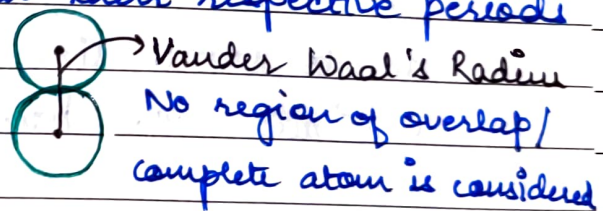 respective periods
Vander Waal's Radius
No region of overlap/
complete atom is considered